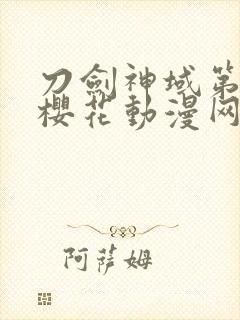 刀劍神域第
櫻花動漫网
阿萨姆